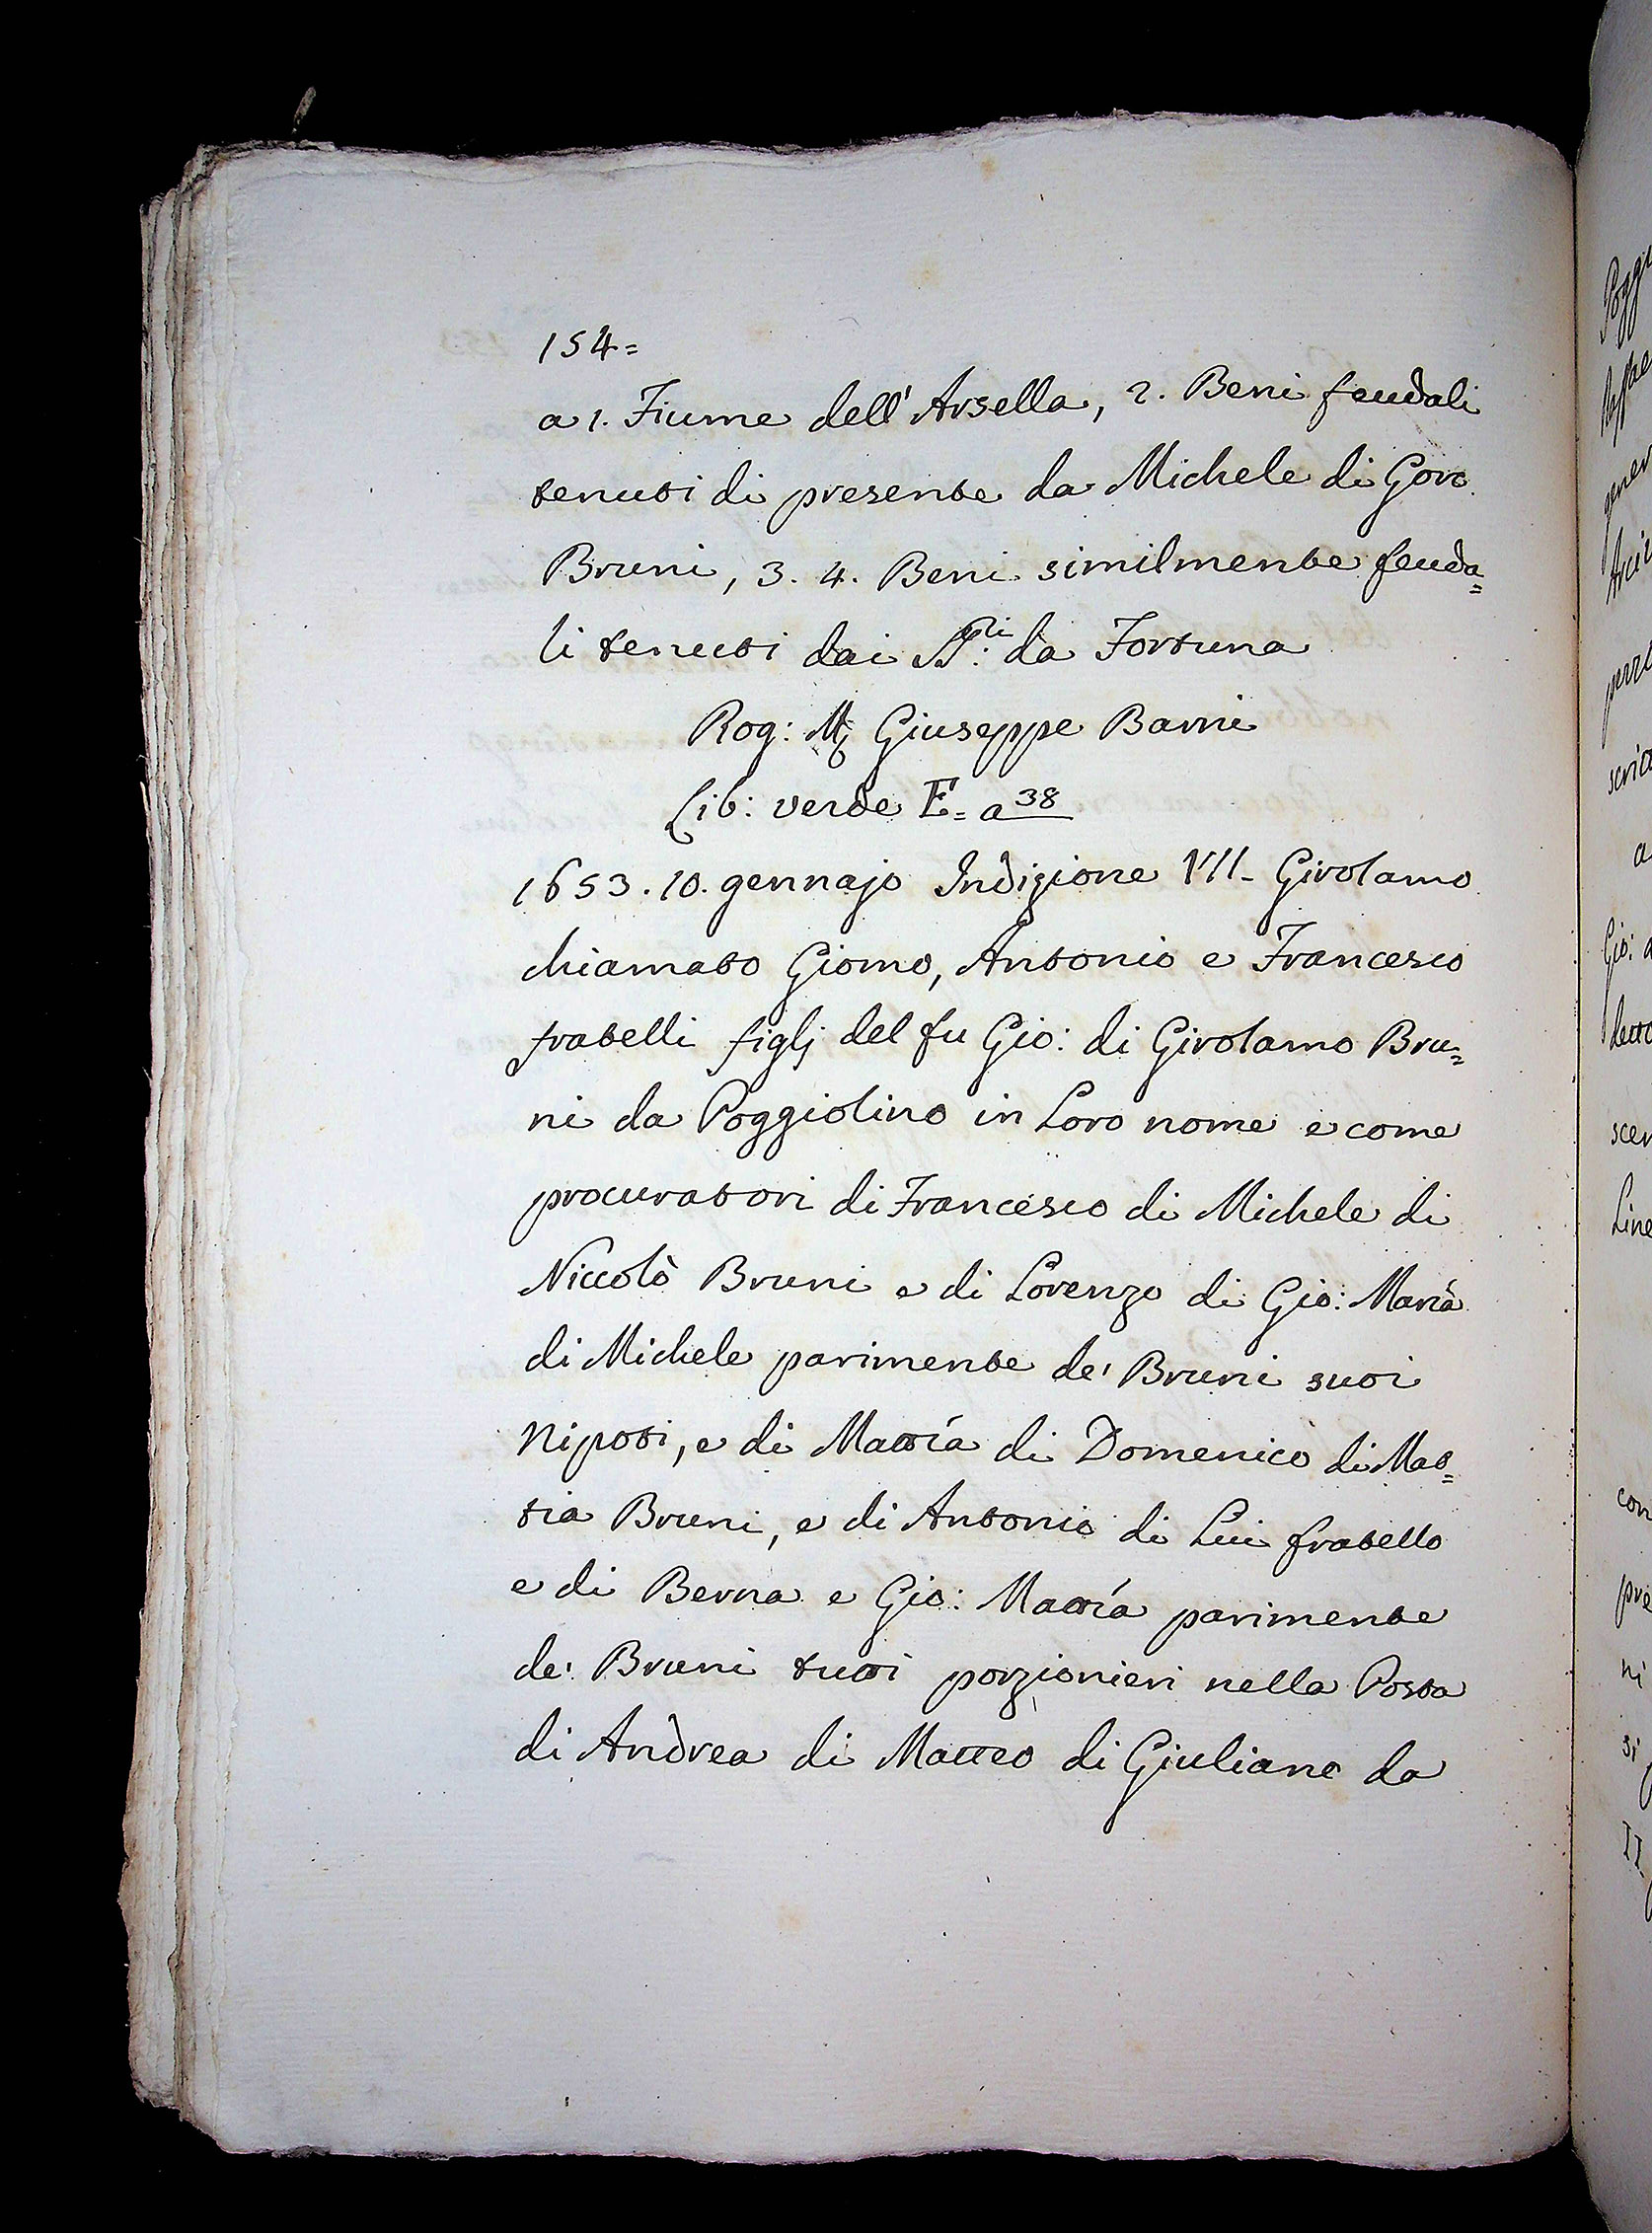 154=
a 1. Fiume dell' Arsella, 2. Beni feudali
tenuti di presente da Michele di Goro
Bruni, 3. 4. Beni similmente feuda=
li tenuti dai da Fortuna
Rog: Giuseppe Barni
Lib: verde E= a 38
1653. 10. gennajo Indizione VII- Girolamo
chiamato Giomo, Antonio e Francesco
fratelli figlj del fu Gio: di Girolamo Bru=
ni da Poggiolino in Loro nome e come
procuratori di Francesco di Michele di
Niccolò Bruni e di Lorenzo di Gio: Maria
di Michele parimente de' Bruni suoi
Nipoti, e di Mattía di Domenico di Mat=
tia Bruni, e di Antonio di Lui fratello
e di Berna e Gio: Mattía parimente
de' Bruni tutti porzionieri nella Posta
di Andrea di Matteo di Giuliano da